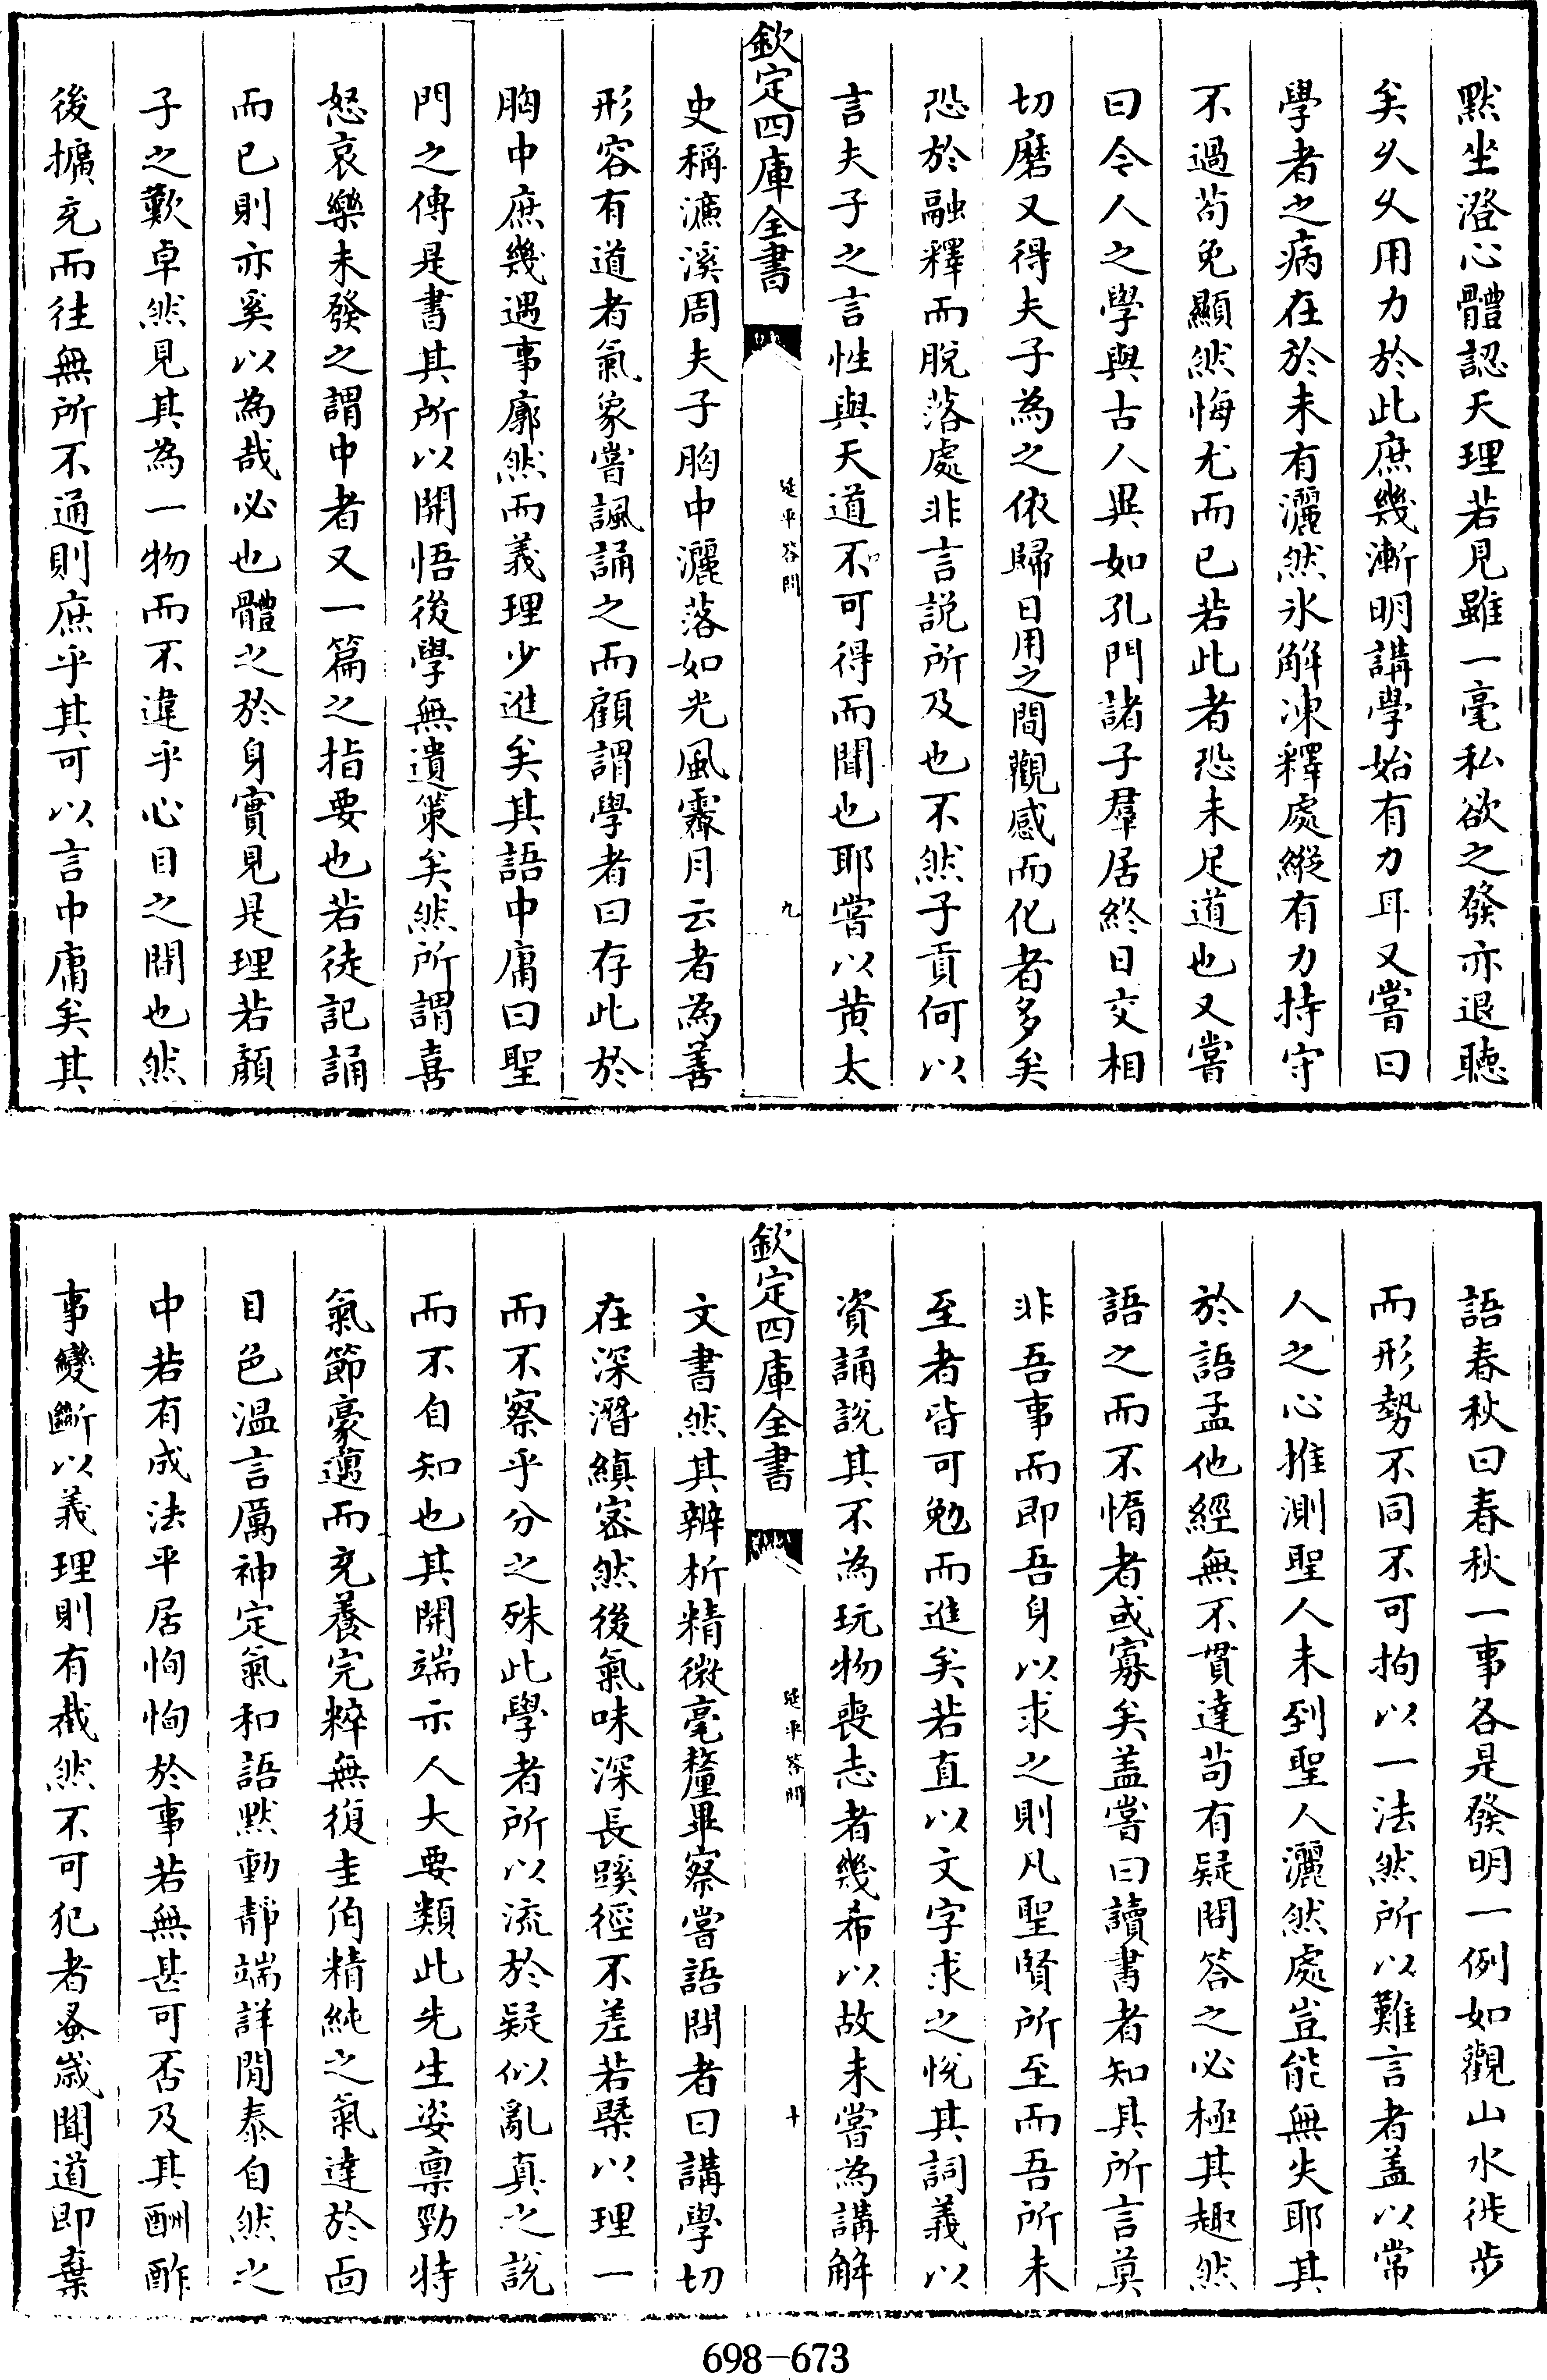 黙坐澄心體認天理若見雖一毫私欲之發亦退聽
矣久久用力於此庶幾漸明講學始有力耳又嘗曰
學者之病在於未有灑然氷解凍釋處縱有力持守
不過苟免顯然悔尤而已若此者恐未足道也又嘗
曰今人之學與古人異如孔門諸子羣居終日交相
切磨又得夫子為之依歸日用之間觀感而化者多矣
恐於融釋而脱落處非言説所及也不然子貢何以
言夫子之言性與天道不可得而聞也耶嘗以黄太
欽定四庫全書
延平答問
九
史稱濂溪周夫子胸中灑落如光風霽月云者為善
形容有道者氣象嘗諷誦之而顧謂學者曰存此於
胸中庶幾遇事廓然而義理少進矣其語中庸曰聖
門之傳是書其所以開悟後學無遺策矣然所謂喜
怒哀樂未發之謂中者又一篇之指要也若徒記誦
而已則亦奚以為哉必也體之於身實見是理若顔
子之歎卓然見其為一物而不違乎心目之間也然
後擴充而往無所不通則庶乎其可以言中庸矣其
語春秋曰春秋一事各是發明一例如觀山水徙步
而形勢不同不可拘以一法然所以難言者盖以常
人之心推測聖人未到聖人灑然處豈能無失耶其
於語孟他經無不貫達苟有疑問答之必極其趣然
語之而不惰者或寡矣盖嘗曰讀書者知其所言莫
非吾事而即吾身以求之則凡聖賢所至而吾所未
至者皆可勉而進矣若直以文字求之悦其詞義以
資誦説其不為玩物喪志者幾希以故未嘗為講解
欽定四庫全書
延平答問
十
文書然其辨析精微毫釐畢察嘗語問者曰講學切
在深潛縝宻然後氣味深長蹊徑不差若槩以理一
而不察乎分之殊此學者所以流於疑似亂真之説
而不自知也其開端示人大要類此先生姿禀勁特
氣節豪邁而充養完粹無復圭角精純之氣達於面
目色温言厲神定氣和語黙動静端詳閒泰自然之
中若有成法平居恂恂於事若無甚可否及其酬酢
事變斷以義理則有截然不可犯者蚤歲聞道即棄
698-673